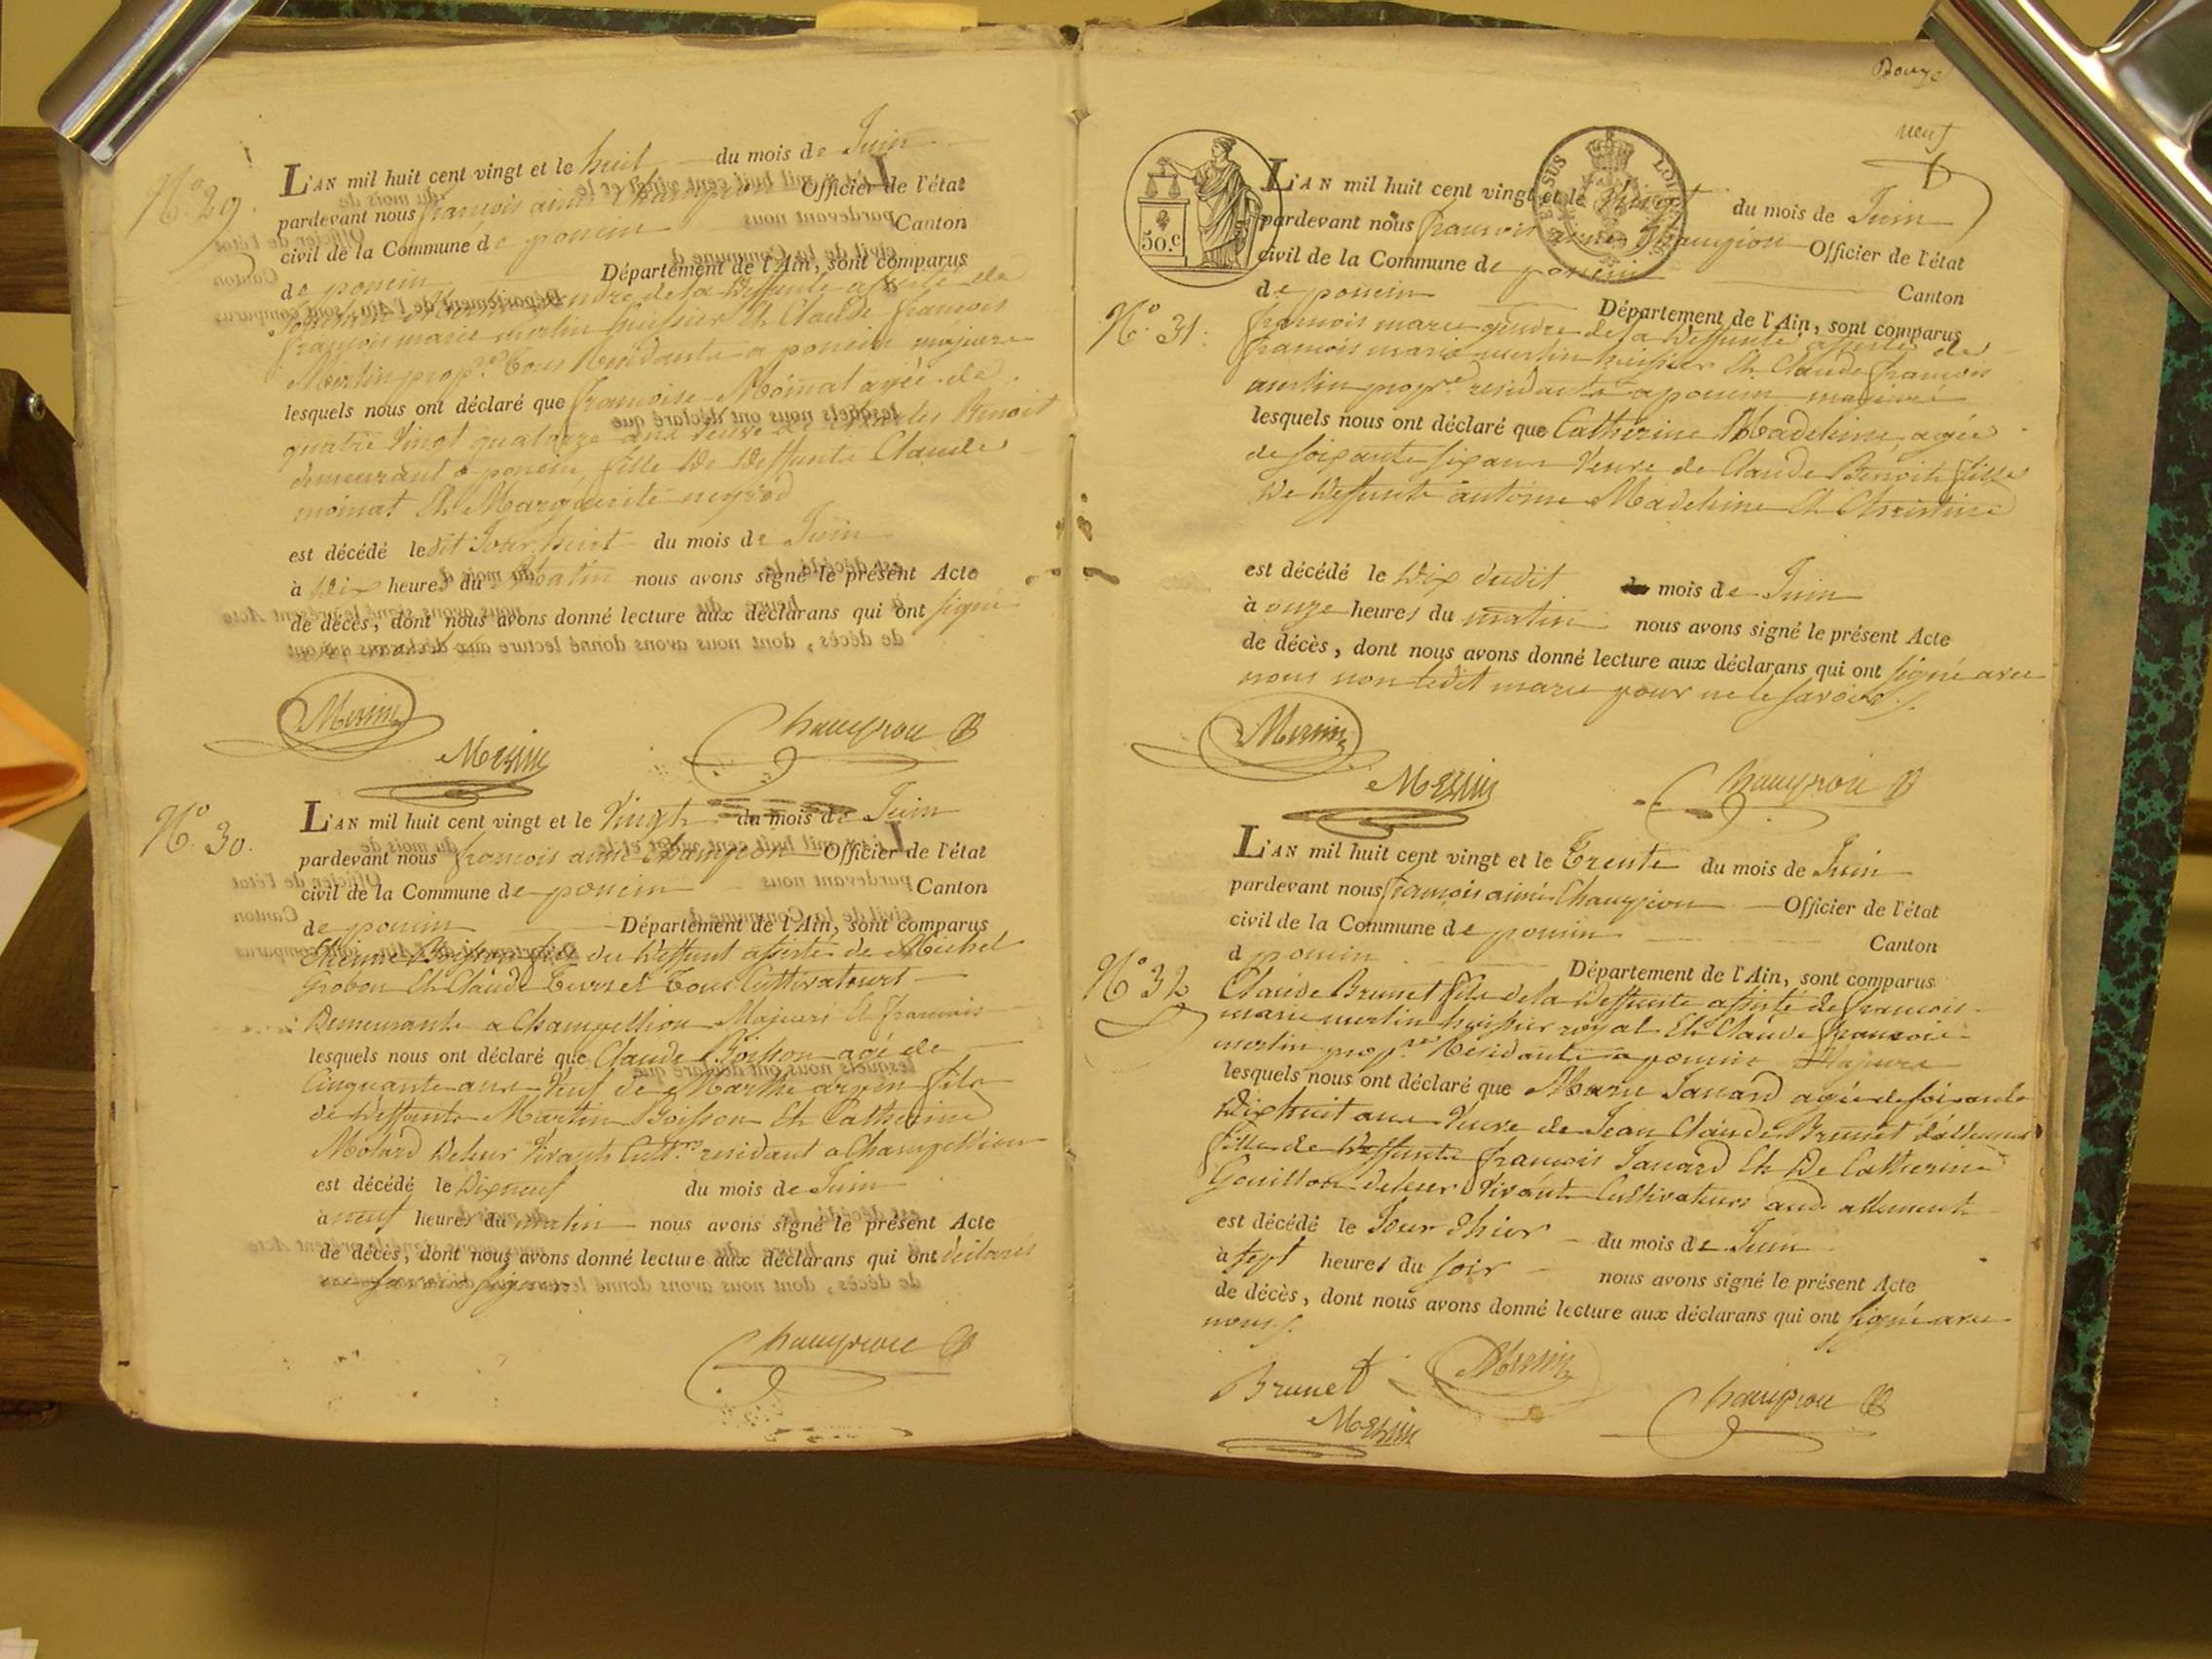 N.º 29.
L'AN mil huit cent vingt et le huit du mois de Juin
pardevant nous françois aimé Champion Officier de l'état
civil de la Commune de poncin Canton
de poncin Département de l'Ain, sont comparus
gendre de la deffunte assisté de
françois marie merlin huissier Et Claude françois
Merlin prop.re tous Residants a poncin majeurs
lesquels nous ont déclaré que françoise Moinat agée de
quatre Vingt quatorze ans veuve de Benoit
demeurant a poncin fille de deffunts Claude
moinat Et Marguerite neyrod
est décédé le dit Jour huit du mois de Juin
à dix heures du Matin nous avons signé le présent Acte
de décès, dont nous avons donné lecture aux déclarans qui ont signé
Merlin
Merlin
Champion
N.º 30.
L'AN mil huit cent vingt et le Vingt du mois de Juin
pardevant nous françois aimé Champion Officier de l'état
civil de la Commune de poncin Canton
de poncin Département de l'Ain, sont comparus
Etienne Boisson fils du deffunt assisté de Michel
Grobon Et Claude tous Cultivateurs
Demeurants a Champeillion Majeurs Et francais
lesquels nous ont déclaré que Claude Boisson agé de
Cinquante ans Veuf de Marthe fils
de deffunts Martin Boisson Et Catherine
Motard de leur Vivant Cult.rs residant a Champeillion
est décédé le Dix neuf du mois de Juin
à neuf heures du matin nous avons signé le présent Acte
de décès, dont nous avons donné lecture aux déclarans qui ont déclarés
ne savoir signer
Champion
Douze
neuf
50.C
L'AN mil huit cent vingt et le Vingt du mois de Juin
pardevant nous françois aimé Champion Officier de l'état
civil de la Commune de poncin Canton
de poncin Département de l'Ain, sont comparus
N.º 31.
françois marie gendre de la deffunte assisté de
francois marie merlin huissier Et Claude francois
merlin prop.re residants a poncin majeurs
lesquels nous ont déclaré que Catherine Madeleine agée
de soixante six ans Veuve de Claude Benoit fille
de deffunts antoine Madeleine Et Christine
est décédé le dix dudit mois de Juin
à onze heures du matin nous avons signé le présent Acte
de décès, dont nous avons donné lecture aux déclarans qui ont signé avec
nous non ledit marie pour ne le savoir
Merlin
Merlin
Champion
L'AN mil huit cent vingt et le Trente du mois de Juin
pardevant nous françois aimé Champion Officier de l'état
civil de la Commune de poncin Canton
d poncin Département de l'Ain, sont comparus
N.º 32
Claude Brunet fils de la deffunte assisté de francois
marie merlin huissier royal Et Claude francois
merlin prop.re Residants a poncin Majeurs
lesquels nous ont déclaré que Marie Janard agée de soixante
dix huit ans Veuve de Jean Claude Brunet
fille de deffunts francois Janard Et De Catherine
Gouillon de leur Vivant Cultivateurs
est décédé le Jour d'hier du mois de Juin
à sept heures du soir nous avons signé le présent Acte
de décès, dont nous avons donné lecture aux déclarans qui ont signé avec
nous
Brunet
Merlin
Merlin
Champion